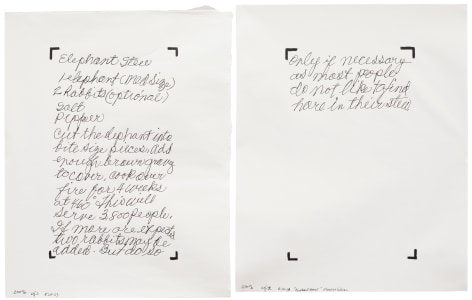 Elephant Stew
1 elephant (Med. Size)
2 Rabbits (optional)
Salt
Pepper
Cut the elephant into
bite size pieces. Add
enough brown gravy
to cover, cook over
fire for 4 weeks
at 460° This will
serve 3,800 people.
If more are expected
two rabbits may be
added. But do so
only if necessary
as most people
do not like to find
hare in their stew